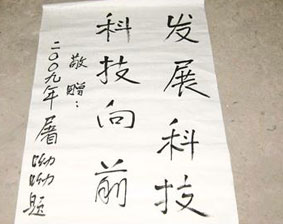 发展科技
科技向前
敬赠：
二〇〇九年 屠呦呦题